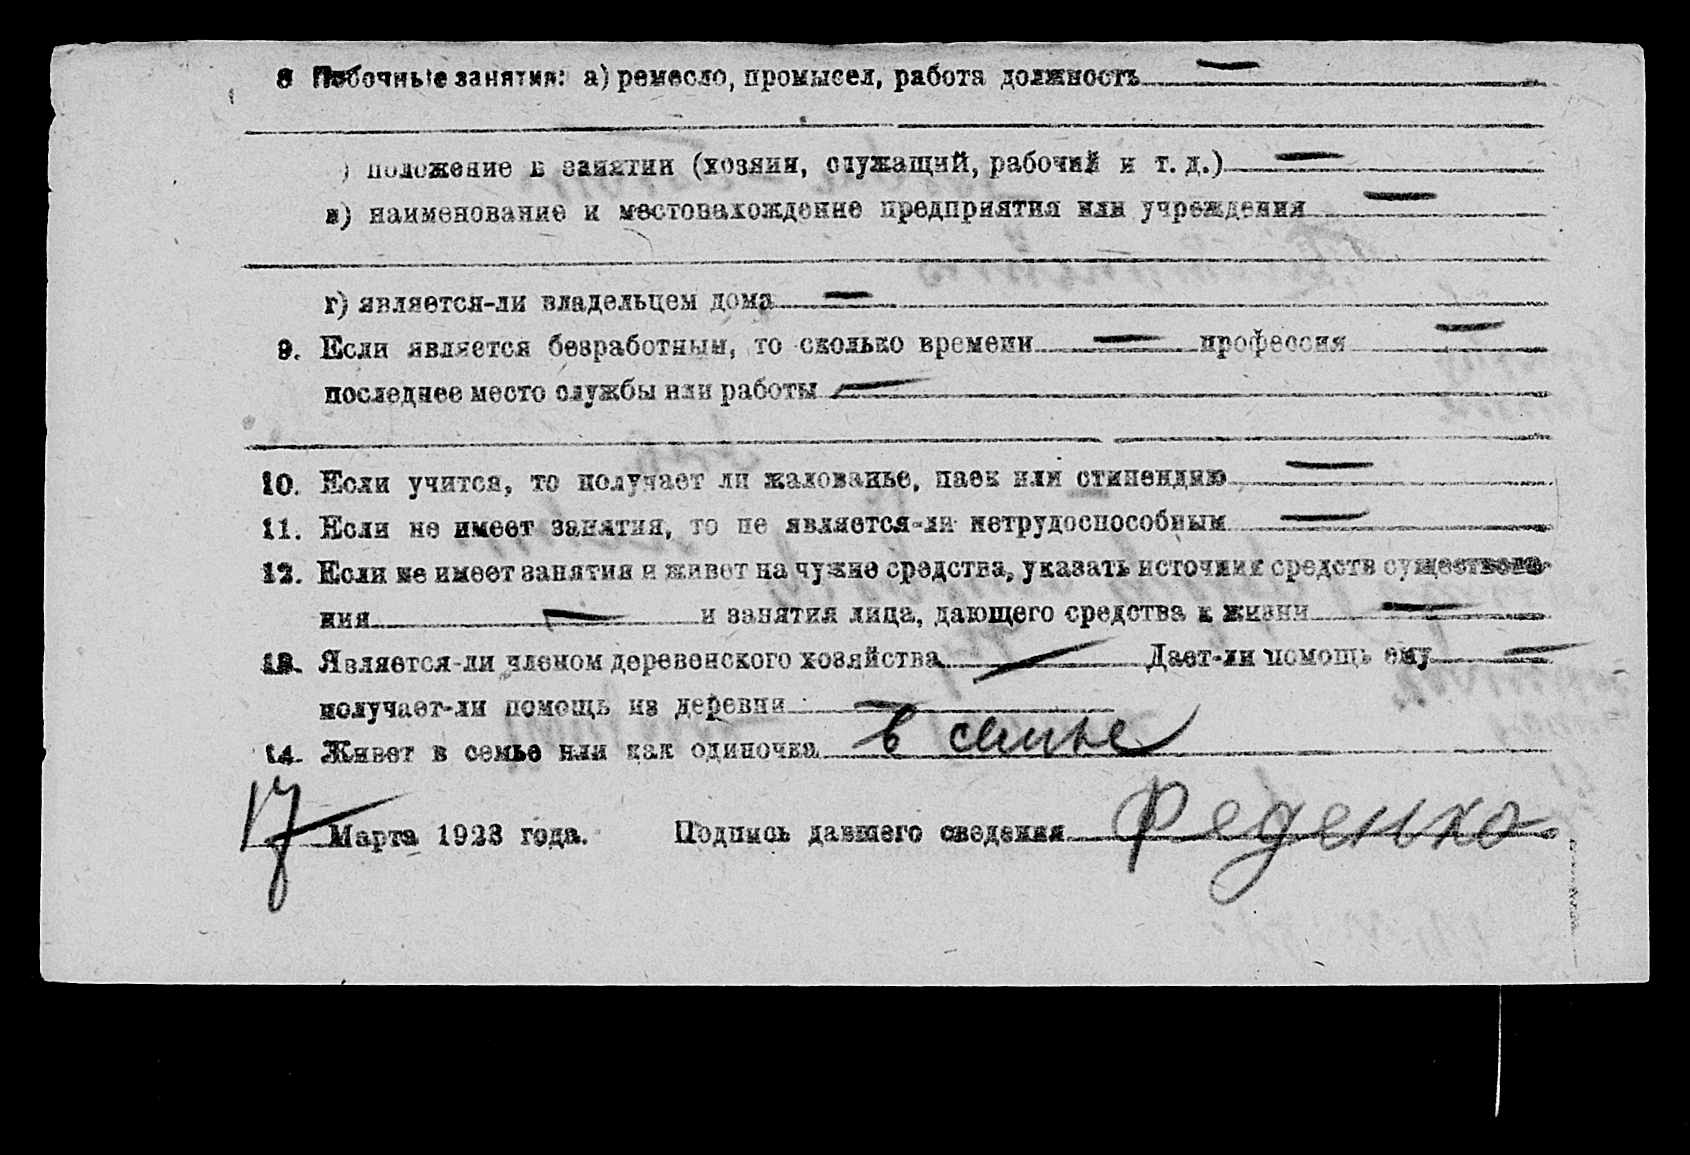 8 Побочные занятия: а) ремесло, промысел, работа должность —
) положение в занятии (хозяин, служащий, рабочий и т. д.) —
в) наименование и местонахождение предприятия или учреждения —
г) является-ли владельцем дома —
9. Если является безработным, то сколько времени — профессия —
последнее место службы или работы —
10. Если учится, то получает ли жалованье, паек или стипендию —
11. Если не имеет занятия, то не является-ли нетрудоспособным —
12. Если не имеет занятия и живет на чужие средства, указать источник средств существова-
ния — и занятия лица, дающего средства к жизни —
13. Является-ли членом деревенского хозяйства — Дает-ли помощь ему —
получает-ли помощь из деревни —
14. Живет в семье или как одиночка в семье
17 Марта 1923 года. Подпись давшего сведения Феденко